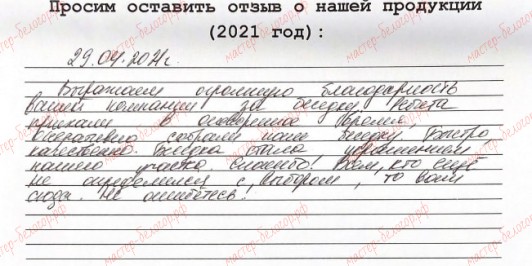 Просим оставить отзыв о нашей продукции
(2021 год):
29.04.2021г.
Выражаем огромную благодарность
вашей компании за беседку. Ребята
приехали в оговоренное время,
оперативно собрали нашу беседку. Быстро
качественно. Беседка стала украшением
нашего участка. Спасибо! Всем, кто ещё
не определился с выбором, то вам
сюда. Не ошибётесь!
мастер-белогор.рф